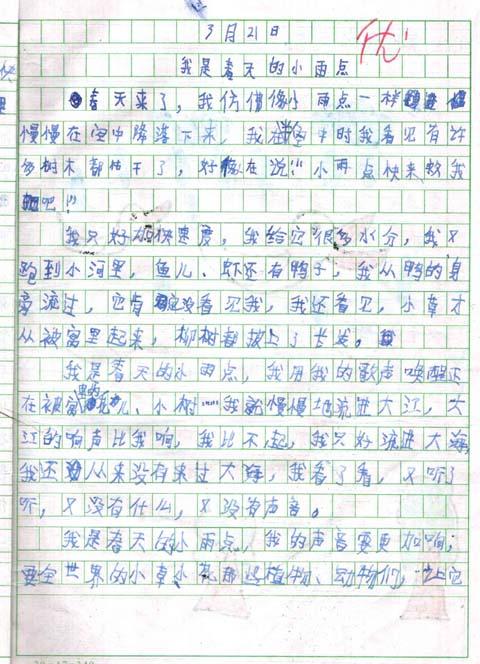 3月21日
优
我是春天的小雨点
春天来了，我仿佛像小雨点一样
慢慢在空中降落下来，我在空中时我看见有许
多树木都枯干了，好像在说“小雨点快来救我
吧！”
我只好加快速度，我给它很多水分，我又
跑到小河里，鱼儿、虾还有鸭子，我从鸭的身
旁流过，它没看见我，我还看见，小草才
从被窝里起来，柳树都披上了长发。
我是春天的小雨点，我用我的歌声唤醒还
在被窝里的儿、小树……我就慢慢地流进大江，大
江的响声比我响，我比不起，我只好流进大海
我还从来没有来过大海，我看了看，又听了
听，又没有什么，又没有声音。
我是春天的小雨点，我的声音要更加响，
要全世界的小草小花那些植物、动物们，让它